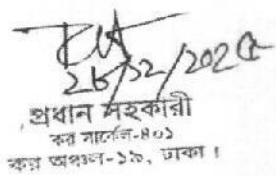 ২৮/১২/২০২৫
প্রধান সহকারী
কর সার্কেল-৪০১
কর অঞ্চল-১৯, ঢাকা।